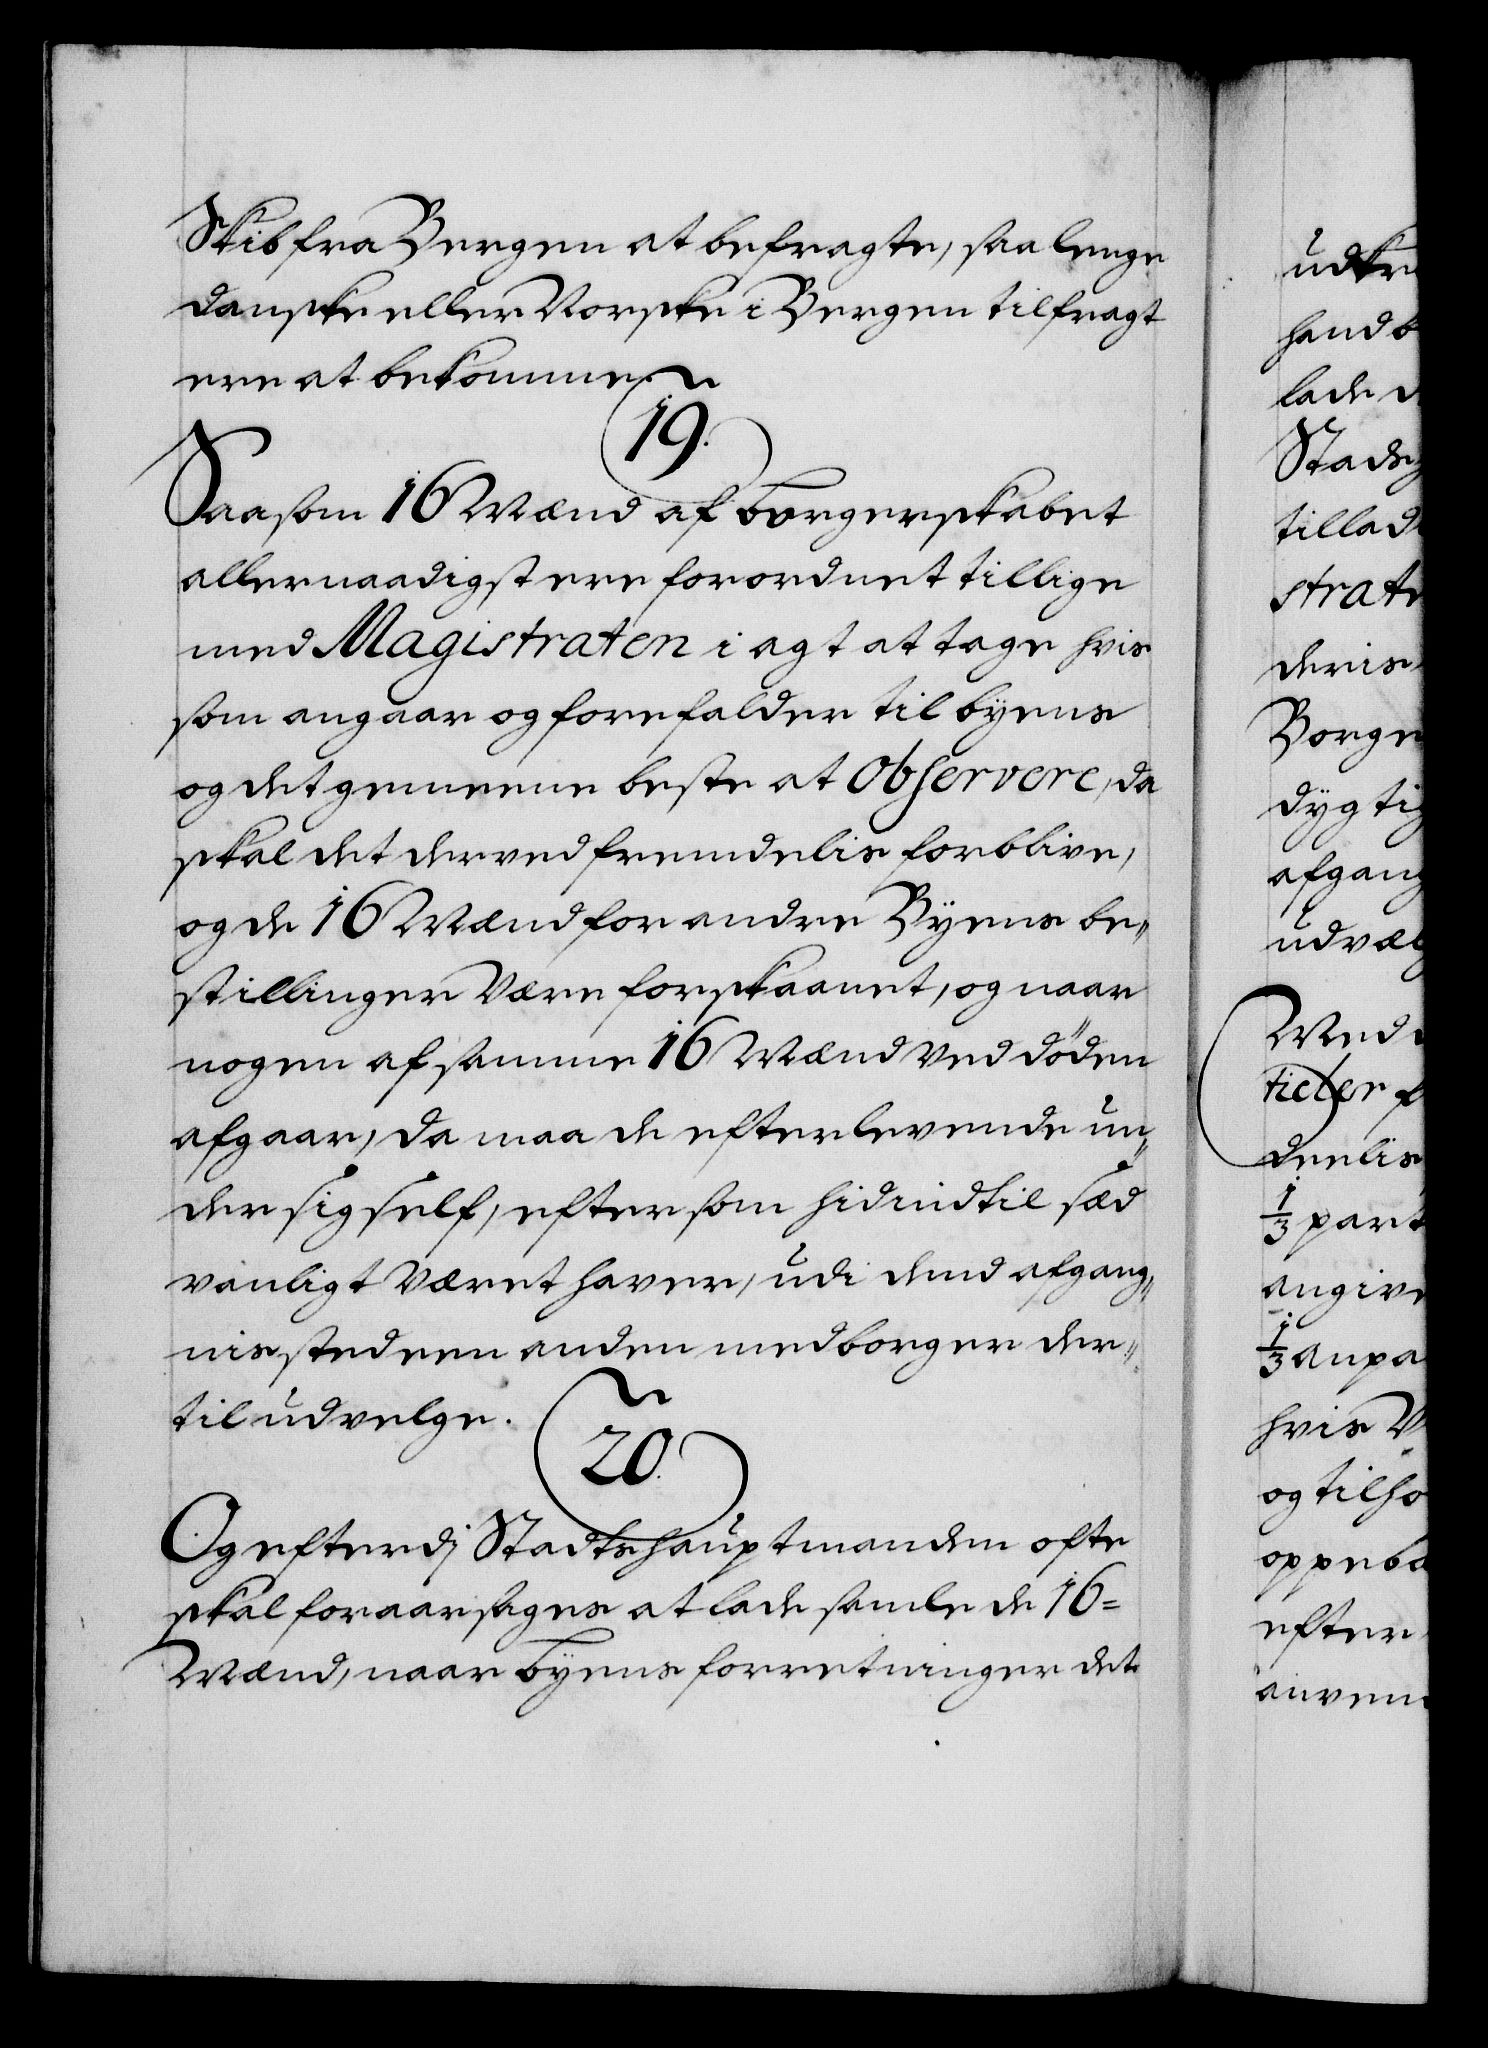 Skib fra Bergen at befragte, saa lenge
danske eller Norske i Bergen til fragt
ere at bekomme.
19.
Saasom 16 Mænd af borgerskabet
allernaadigst ere forordnet tillige
med Magistraten i agt at tage hvis
som angaar og forefalder til byens
og det gemeene beste at observere, da
skal det derved fremdelis forblive,
og de 16 Mænd for andre Byens be„
stillinger Være forskaanet, og naar
nogen af samme 16 Mænd ved döden
afgaar, da maa de efterlevende un„
der sig self, eftersom hidindtil sæd
vanligt Været haver, udi dend afgang„
nis sted een anden medborger der„
til udvelge.
20.
Og efterdj Stadtshauptmanden ofte
skal foraarsages at lade samle de 16=
Mænd, naar byens forretninger det
udkr
hand b
lade d
Stads
tillad
strate
deris
Borge
dygtig
afgang
udvælg
Med
ticler f
deelis
1/3 part
angive
1/3 anpa
hvis V
og tilho
oppeba
efter
anven